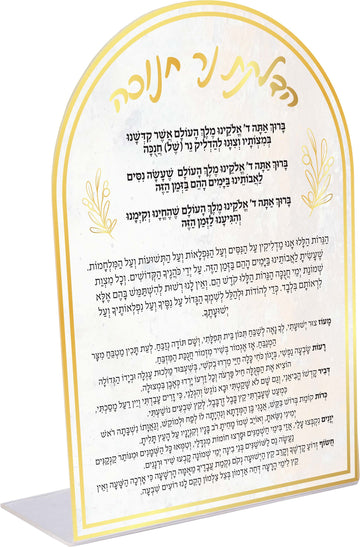 הדלקת נר חנוכה
בָּרוּךְ אַתָּה ד' אֱלֹקֵינוּ מֶלֶךְ הָעוֹלָם אֲשֶׁר קִדְּשָׁנוּ
בְּמִצְוֹתָיו וְצִוָּנוּ לְהַדְלִיק נֵר (שֶׁל) חֲנֻכָּה
בָּרוּךְ אַתָּה ד' אֱלֹקֵינוּ מֶלֶךְ הָעוֹלָם שֶׁעָשָׂה נִסִּים
לַאֲבוֹתֵינוּ בַּיָּמִים הָהֵם בַּזְּמַן הַזֶּה
בָּרוּךְ אַתָּה ד' אֱלֹקֵינוּ מֶלֶךְ הָעוֹלָם שֶׁהֶחֱיָנוּ וְקִיְּמָנוּ
וְהִגִּיעָנוּ לַזְּמַן הַזֶּה
הַנֵּרוֹת הַלָּלוּ אָנוּ מַדְלִיקִין עַל הַנִּסִּים וְעַל הַנִּפְלָאוֹת וְעַל הַתְּשׁוּעוֹת וְעַל הַמִּלְחָמוֹת.
שֶׁעָשִׂיתָ לַאֲבוֹתֵינוּ בַּיָּמִים הָהֵם בַּזְּמַן הַזֶּה. עַל יְדֵי כֹּהֲנֶיךָ הַקְּדוֹשִׁים. וְכָל מִצְוַת
שְׁמוֹנַת יְמֵי חֲנֻכָּה הַנֵּרוֹת הַלָּלוּ קֹדֶשׁ הֵם. וְאֵין לָנוּ רְשׁוּת לְהִשְׁתַּמֵּשׁ בָּהֶם אֶלָּא
לִרְאוֹתָם בִּלְבַד. כְּדֵי לְהוֹדוֹת וּלְהַלֵּל לְשִׁמְךָ הַגָּדוֹל עַל נִסֶּיךָ וְעַל נִפְלְאוֹתֶיךָ וְעַל
יְשׁוּעָתֶךָ.
מָעוֹז צוּר יְשׁוּעָתִי. לְךָ נָאֶה לְשַׁבֵּחַ תִּכּוֹן בֵּית תְּפִלָּתִי. וְשָׁם תּוֹדָה נְזַבֵּחַ. לְעֵת תָּכִין מַטְבֵּחַ מִצָּר
הַמְנַבֵּחַ. אָז אֶגְמוֹר בְּשִׁיר מִזְמוֹר חֲנֻכַּת הַמִּזְבֵּחַ.
רָעוֹת שָׂבְעָה נַפְשִׁי. בְּיָגוֹן כֹּחִי כָּלָה חַיַּי מֵרְרוּ בְקֹשִׁי. בְּשִׁעְבּוּד מַלְכוּת עֶגְלָה וּבְיָדוֹ הַגְּדוֹלָה.
הוֹצִיא אֶת הַסְּגֻלָּה חֵיל פַּרְעֹה וְכָל זַרְעוֹ יָרְדוּ כְאֶבֶן בִּמְצוּלָה.
דְּבִיר קָדְשׁוֹ הֱבִיאַנִי. וְגַם שָׁם לֹא שָׁקַטְתִּי וּבָא נוֹגֵשׂ וְהִגְלַנִי. כִּי זָרִים עָבַדְתִּי וְיֵין רַעַל מָסַכְתִּי.
כִּמְעַט שֶׁעָבַרְתִּי קֵץ בָּבֶל זְרֻבָּבֶל. לְקֵץ שִׁבְעִים נוֹשַׁעְתִּי.
כְּרוֹת קוֹמַת בְּרוֹשׁ בִּקֵּשׁ. אֲגָגִי בֶּן הַמְּדָתָא וְנִהְיָתָה לוֹ לְפַח וּלְמוֹקֵשׁ. וְגַאֲוָתוֹ נִשְׁבָּתָה רֹאשׁ
יְמִינִי נִשֵּׂאתָ. וְאוֹיֵב שְׁמוֹ מָחִיתָ רֹב בָּנָיו וְקִנְיָנָיו עַל הָעֵץ תָּלִיתָ.
יְוָנִים נִקְבְּצוּ עָלַי. אֲזַי בִּימֵי חַשְׁמַנִּים וּפָרְצוּ חוֹמוֹת מִגְדָּלַי. וְטִמְּאוּ כָּל הַשְּׁמָנִים וּמִנּוֹתַר קַנְקַנִּים
נַעֲשָׂה נֵס לַשּׁוֹשַׁנִּים בְּנֵי בִינָה יְמֵי שְׁמוֹנָה קָבְעוּ שִׁיר וּרְנָנִים.
חֲשׂוֹף זְרוֹעַ קָדְשֶׁךָ וְקָרֵב קֵץ הַיְשׁוּעָה נְקֹם נִקְמַת עֲבָדֶיךָ מֵאֻמָּה הָרְשָׁעָה כִּי אָרְכָה הַשָּׁעָה וְאֵין
קֵץ לִימֵי הָרָעָה דְּחֵה אַדְמוֹן בְּצֵל צַלְמוֹן הָקֵם לָנוּ רוֹעִים שִׁבְעָה.